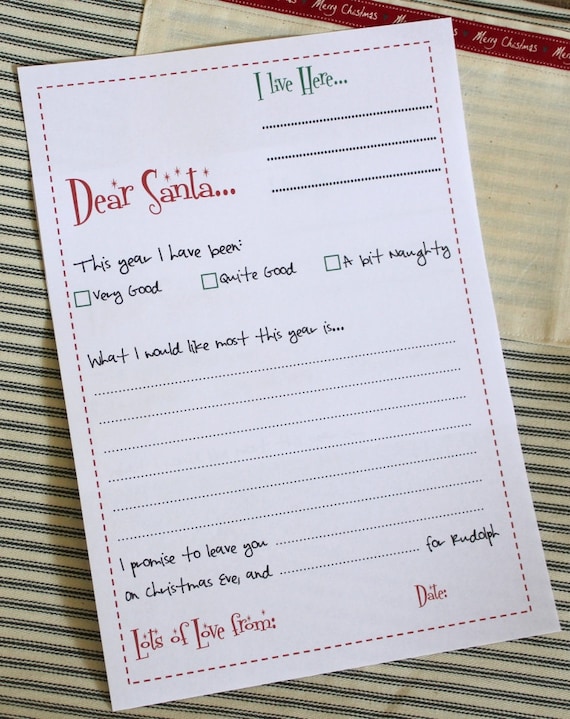 Merry Christmas Merry Christmas Merry Christmas
I live Here...
Dear Santa...
This year I have been:
Very Good Quite Good A bit Naughty
What I would like most this year is...
I promise to leave you
on Christmas Eve, and for Rudolph
Date:
Lots of Love from: